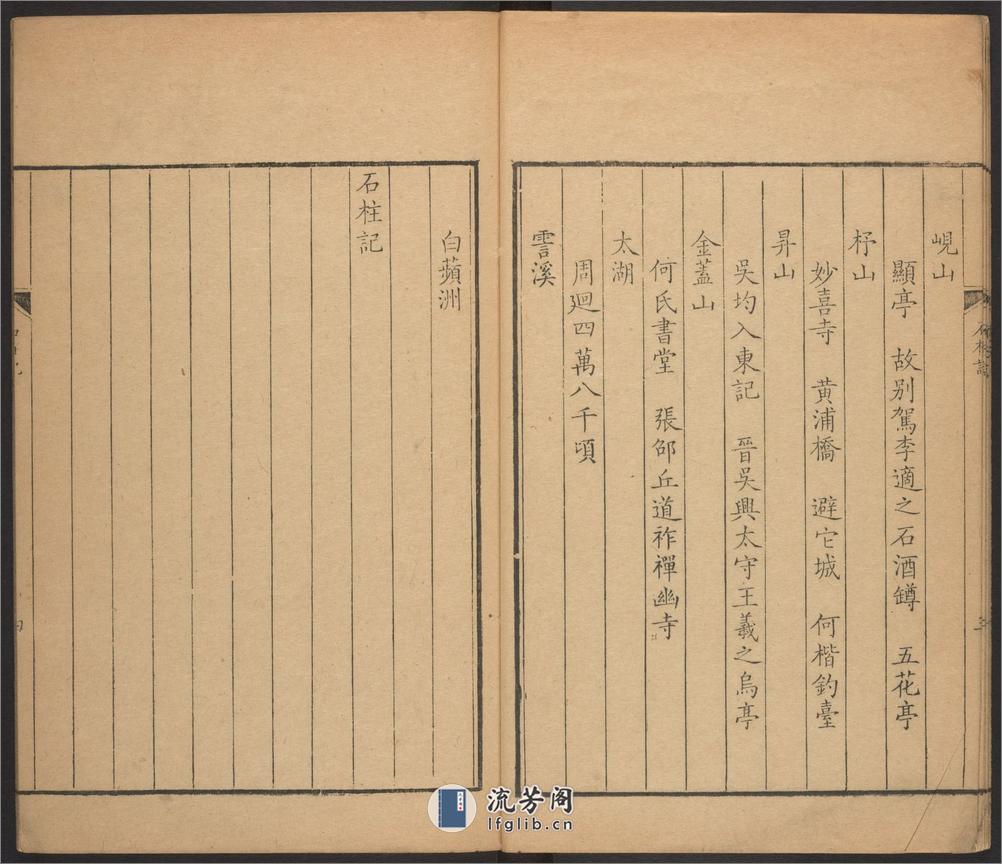 峴山
顯亭　故别駕李適之石酒罇　五花亭
杼山
妙喜寺　黄浦橋　避它城　何楷釣臺
昇山
吳均入東記　晉吳興太守王羲之烏亭
金葢山
何氏書堂　張邵丘道祚禪幽寺
太湖
周廻四萬八千頃
霅溪
白蘋洲
石柱記
流芳阁
lfglib.cn